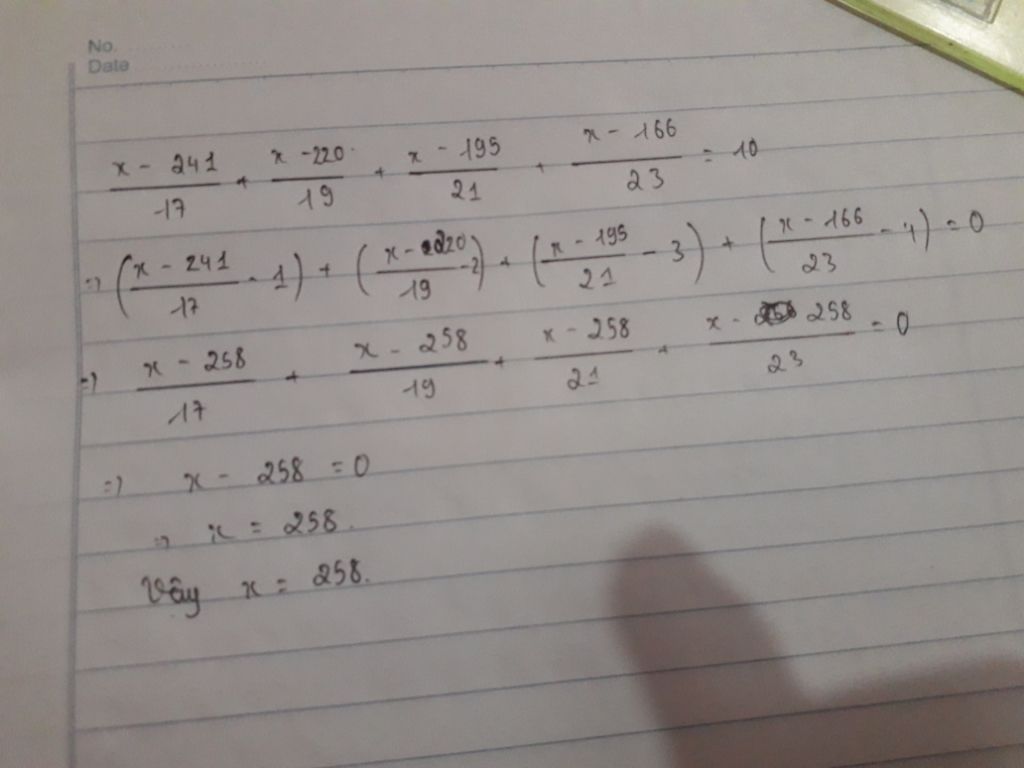 No.
Date
x - 241/17 + x - 220/19 + x - 195/21 + x - 166/23 = 10
=> (x - 241/17 - 1) + (x - 220/19 - 2) + (x - 195/21 - 3) + (x - 166/23 - 4) = 0
=> x - 258/17 + x - 258/19 + x - 258/21 + x - 258/23 = 0
=> x - 258 = 0
=> x = 258.
Vậy x = 258.